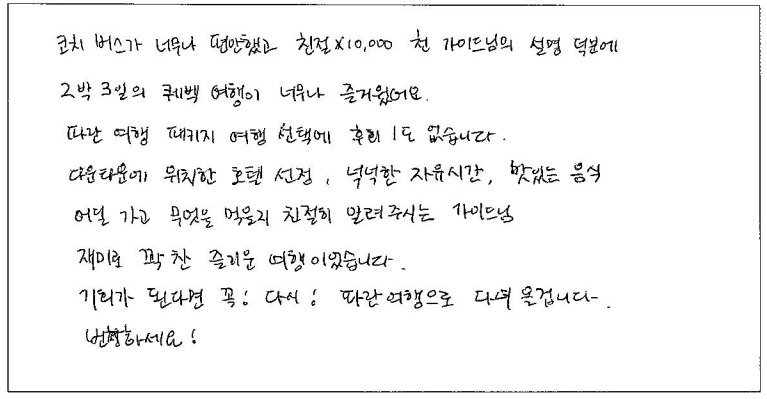 코치 버스가 너무나 편안했고 친절×10,000 천 가이드님의 설명 덕분에
2박 3일의 퀘벡 여행이 너무나 즐거웠어요.
파란 여행 패키지 여행 선택에 후회 1도 없습니다.
다운타운에 위치한 호텔 선정, 넉넉한 자유시간, 맛있는 음식
어딜 가고 무엇을 먹을지 친절히 알려주시는 가이드님
재미로 꽉 찬 즐거운 여행이었습니다.
기회가 된다면 꼭! 다시! 파란여행으로 다녀올겁니다.
번창하세요!